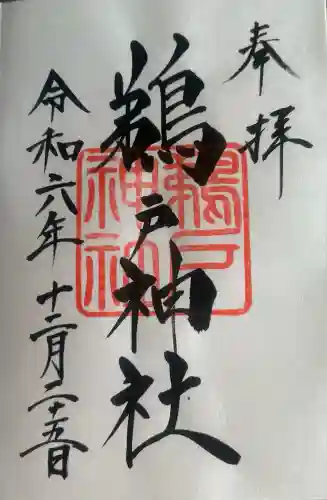 奉拝
鵜戸神社
令和六年十二月二十五日
鵜戸
神社